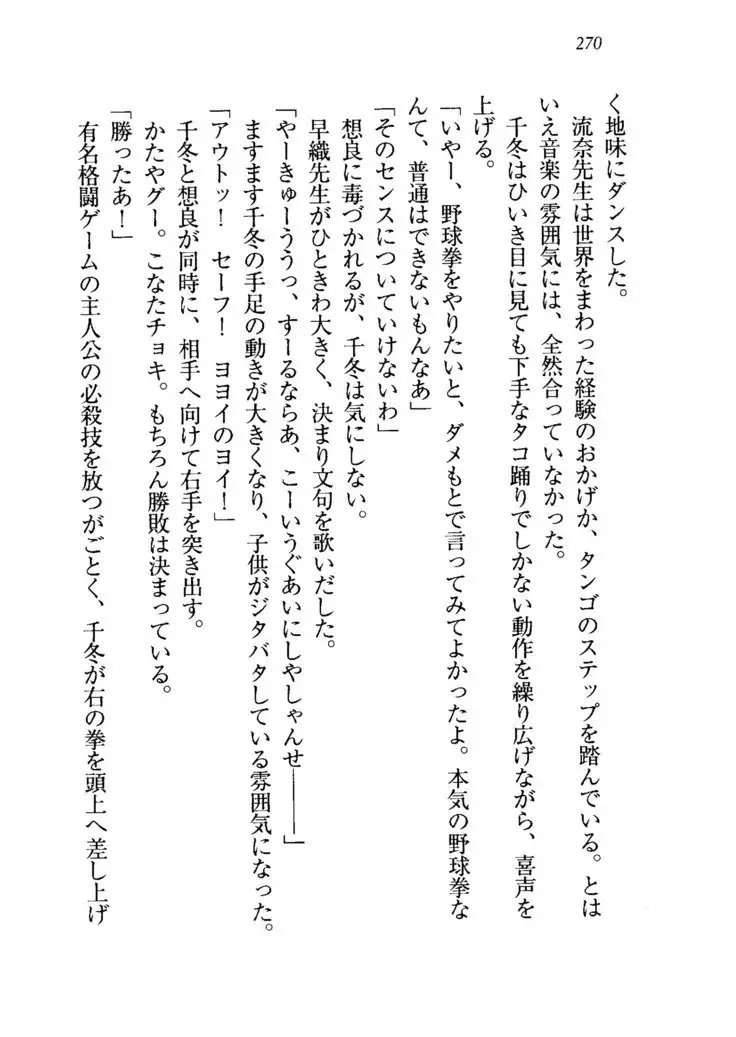 270
く地味にダンスした。
流奈先生は世界をまわった経験のおかげか、タンゴのステップを踏んでいる。とは
いえ音楽の雰囲気には、全然合っていなかった。
千冬はひいき目に見ても下手なタコ踊りでしかない動作を繰り広げながら、喜声を
上げる。
「いやー、野球拳をやりたいと、ダメもとで言ってみてよかったよ。本気の野球拳な
んて、普通はできないもんなあ」
「そのセンスについていけないわ」
想良に毒づかれるが、千冬は気にしない。
早織先生がひときわ大きく、決まり文句を歌いだした。
「やーきゅーううっ、すーるならあ、こーいうぐあいにしやしゃんせ――――」
ますます千冬の手足の動きが大きくなり、子供がジタバタしている雰囲気になった。
「アウトッ！　セーフ！　ヨヨイのヨイ！」
千冬と想良が同時に、相手へ向けて右手を突き出す。
かたやグー。こなたチョキ。もちろん勝敗は決まっている。
「勝ったあ！」
有名格闘ゲームの主人公の必殺技を放つがごとく、千冬が右の拳を頭上へ差し上げ